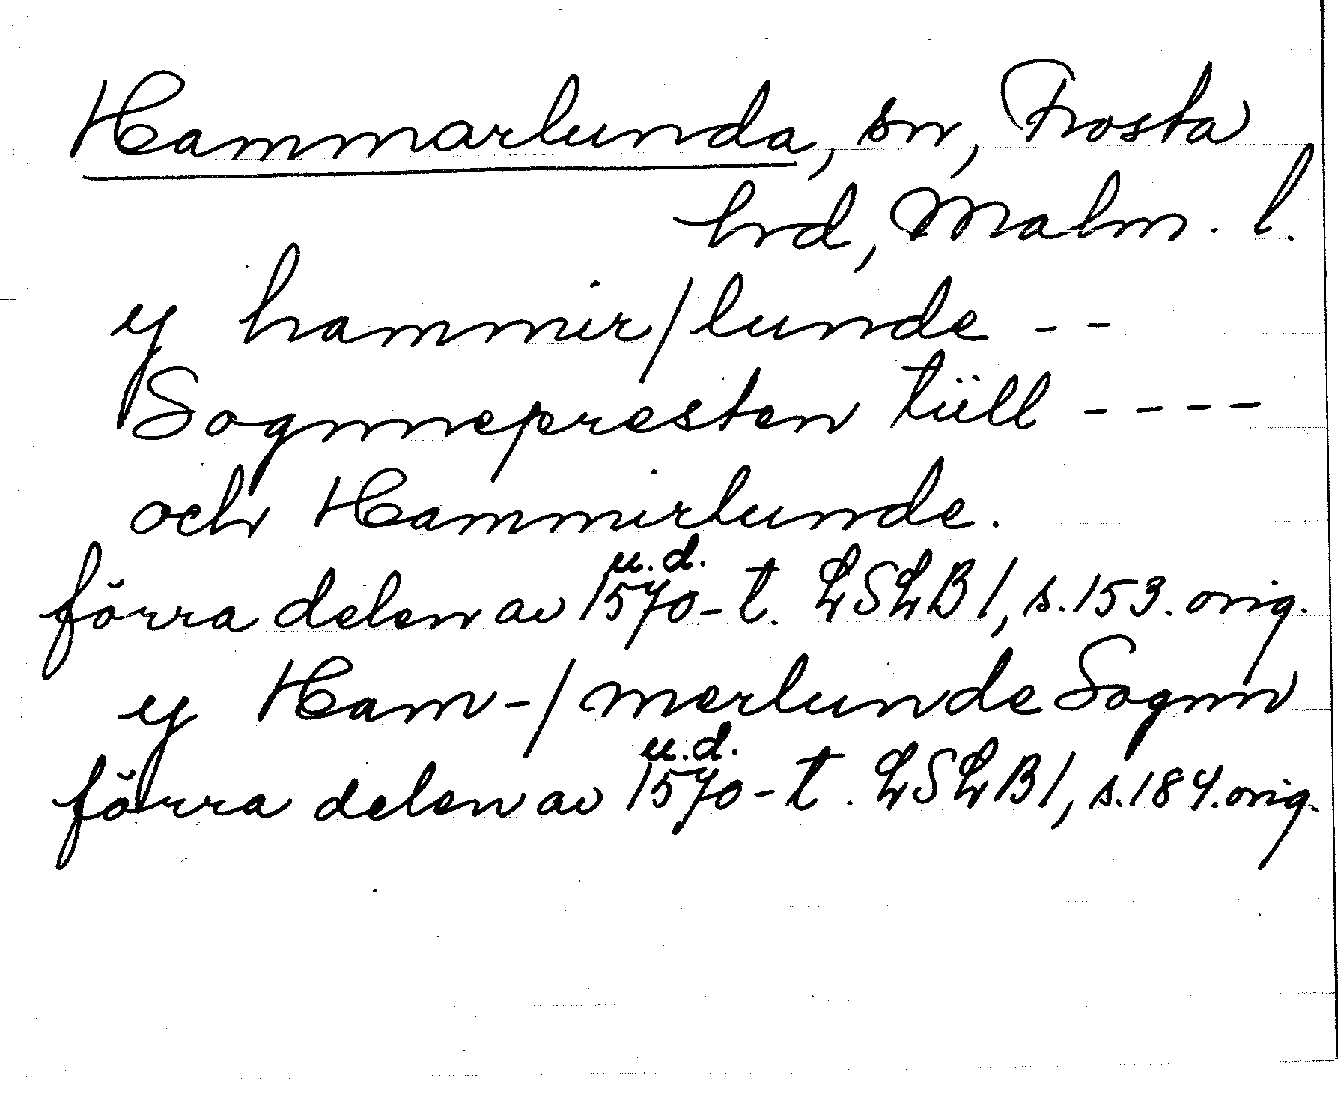 Hammarlunda, sn, Frosta
hrd, Malm. l.
y hammir/lunde - -
Sognnepresten tüll - - - -
och Hammirlunde.
u.d.
förra delen av 1570-t. LSLB 1, s. 153. orig.
y Ham-/merlunde Sognn
u.d.
förra delen av 1570-t. LSLB 1, s. 184. orig.